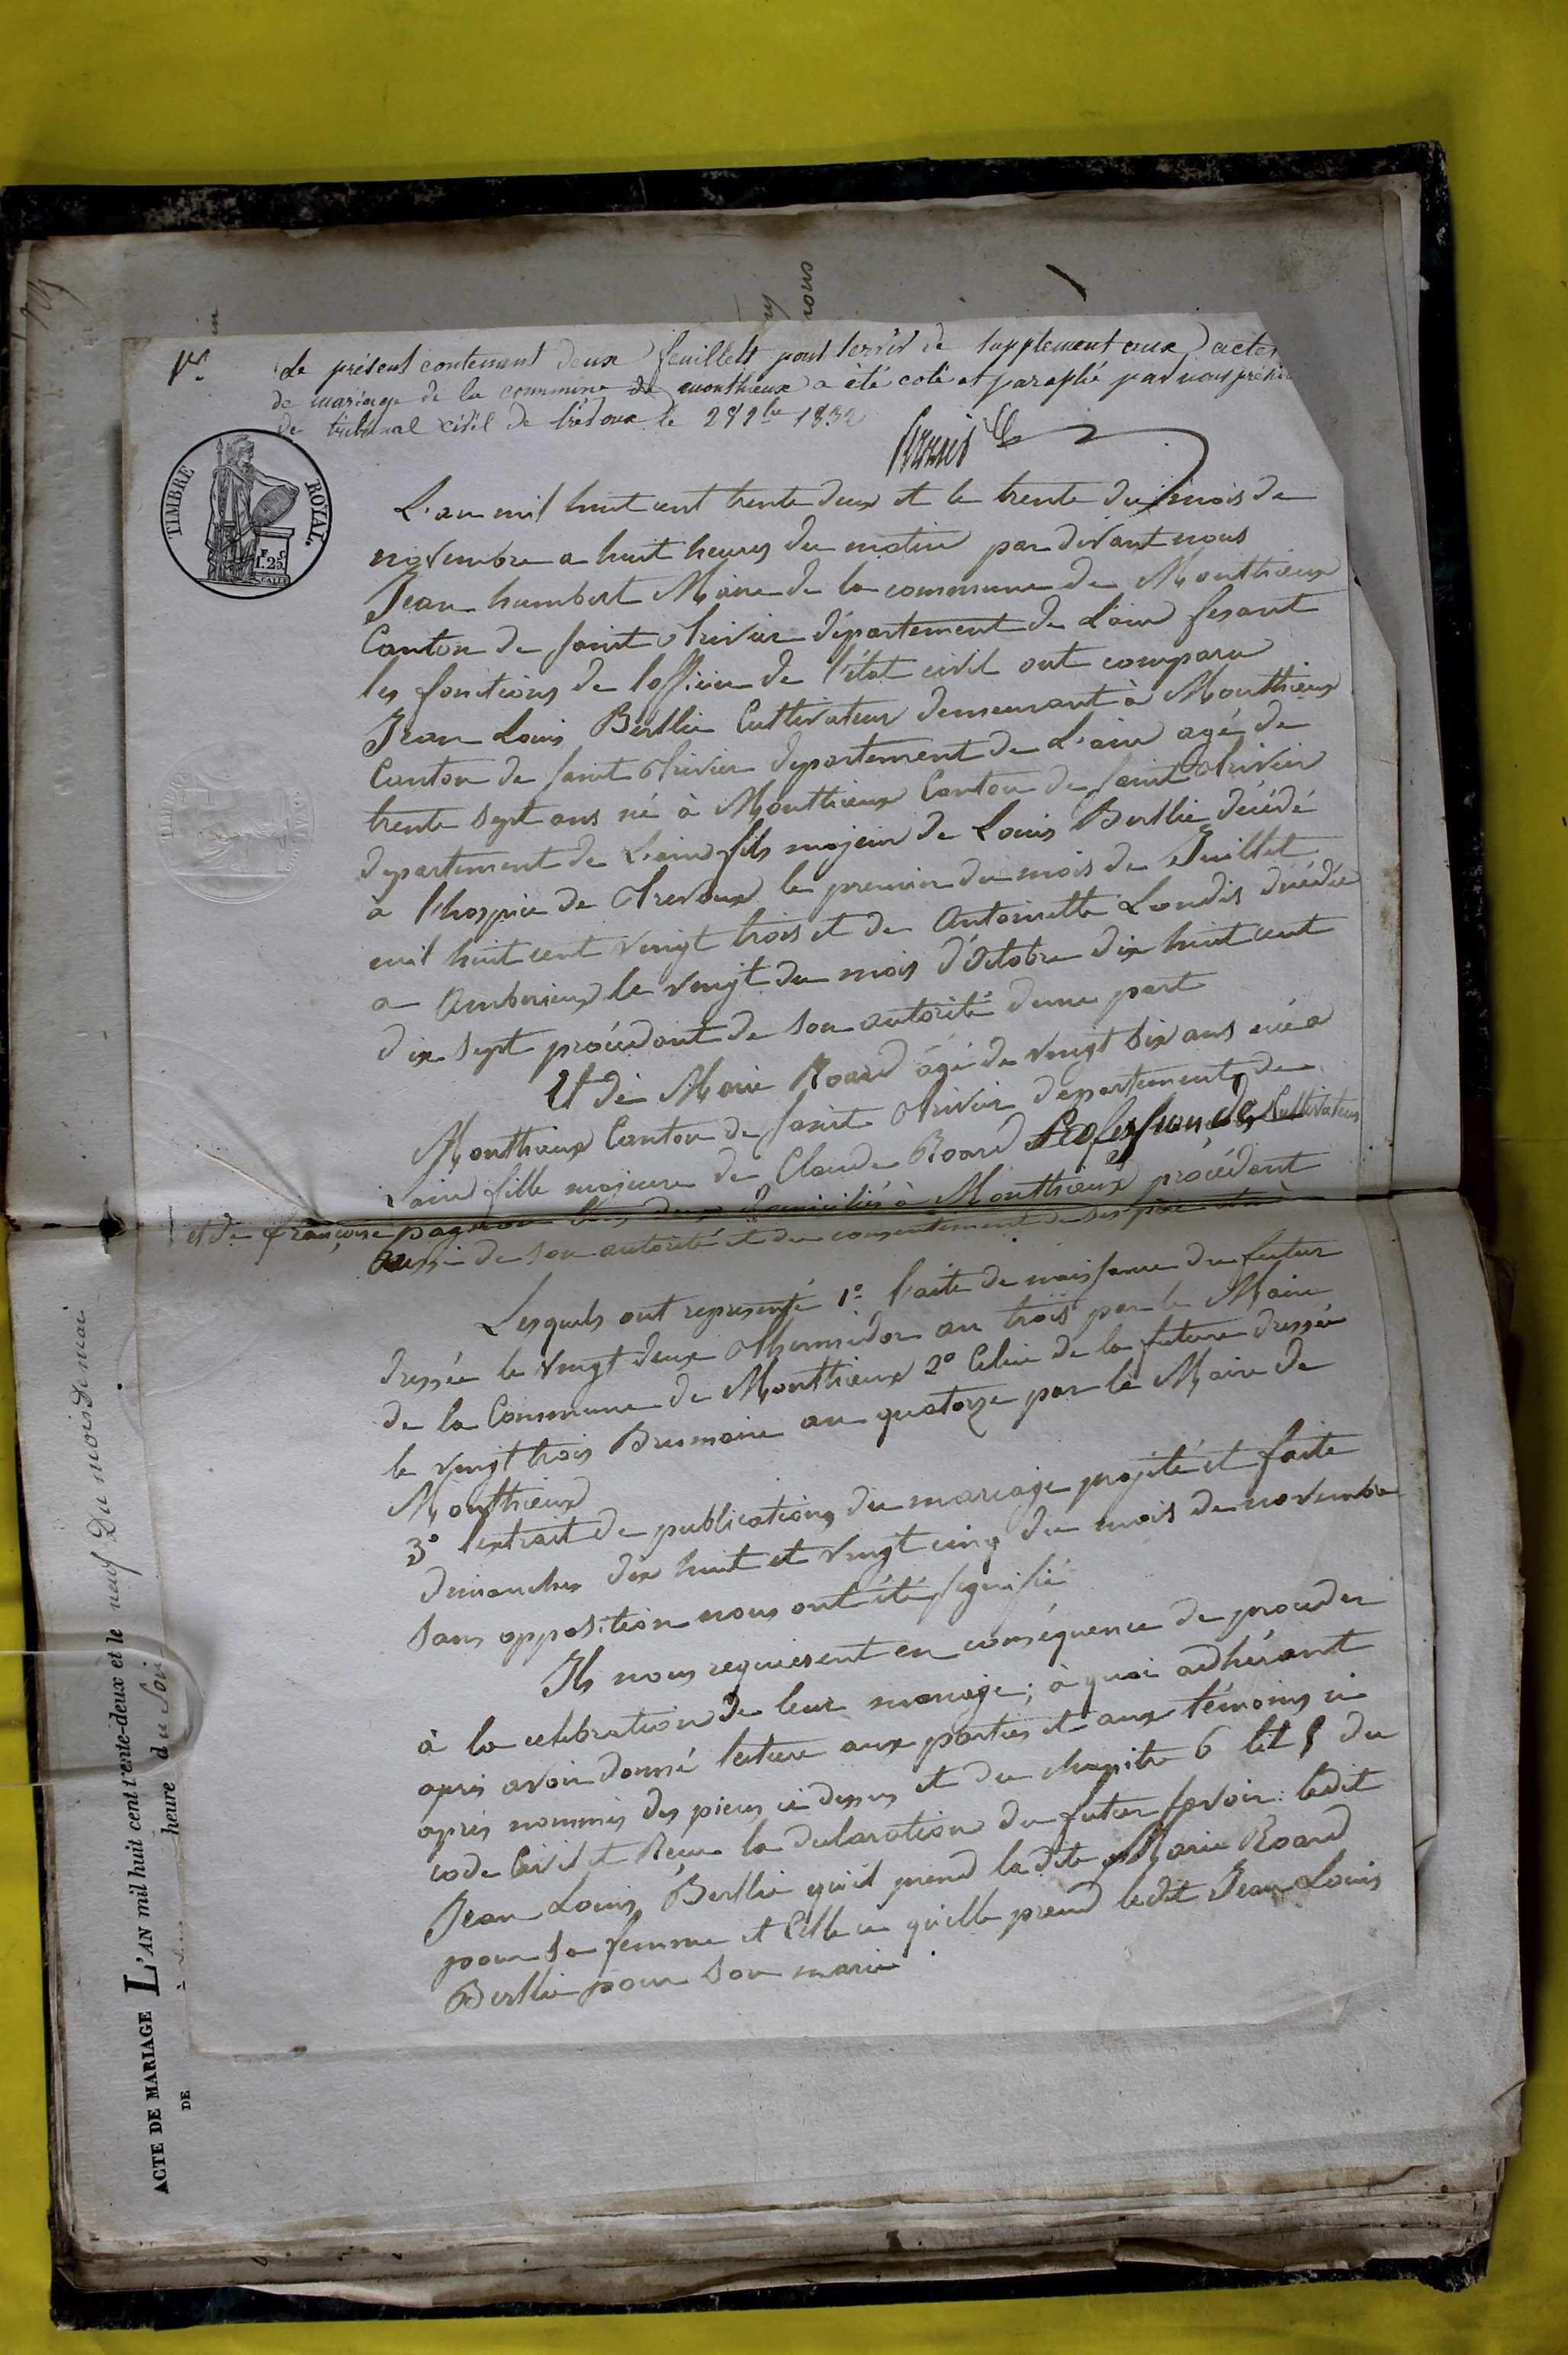 1er
Le présent contenant deux feuillets pour servir de supplement aux actes
de mariage de la commune de monthieux a été coté et paraphé par nous présid
du tribunal civil de trévoux le 28 9bre 1832
TIMBRE ROYAL.
F. C.
1.25
L'an mil huit cent trente deux et le trente du mois de
novembre a huit heures du matin par devant nous
Jean humbert Maire de la commune de Monthieux
Canton de saint trivier département de L'ain fesant
les fonctions de loffiier de l'état civil ont comparu
Jean Louis Berllie Cultivateur demeurant à Monthieux
Canton de saint trivier departement de L'ain agé de
trente sept ans né à Monthieux Canton de saint trivier
departement de L'ain fils majeur de Louis Berllie décédé
a l'hospice de trevoux le premier du mois de Juillet
mil huit cent vingt trois et de Antoinette Loudis décédée
a Amberieux le vingt du mois d'octobre dix huit cent
dix sept procédant de son autorité dune part
Et de Marie Roard âgé de vingt six ans née a
Monthieux Canton de saint trivier departement de
Lain fille majeure de Claude Roard Profession de Cultivateur
et de françoise pageron tous deux domiciliés à Monthieux procédant
aussi de son autorité et du consentement de ses père et mère
Lesquels ont representé 1° l'acte de naissance du futur
dressée le vingt deux thermidor an trois par le Maire
de la Commune de Monthieux 2° Celui de la future dressée
le vingt trois Brumaire an quatorze par le Maire de
Monthieux
3° lextrait de publications du mariage projité et faite
dimanches dix huit et vingt cinq du mois de novembre
sans opposition nous ont été signifié
Ils nous requierent en conséquence de proceder
à la celebration de leur mariage; à quoi adhérant
apris avoir donné lecture aux parties et aux témoins ci
après nommés des pieces ci dessus et du chapitre 6 tit 5 du
code Civil et Recu la declaration du futur savoir: ledit
Jean Louis Berllie qu'il prend la dite Marie Roard
pour sa femme et Celle ci qu'elle prend ledit Jean Louis
Berllie pour son mari
ACTE DE MARIAGE L'AN mil huit cent trente-deux et le neuf Du mois de mai
DE
heure du soir
nous